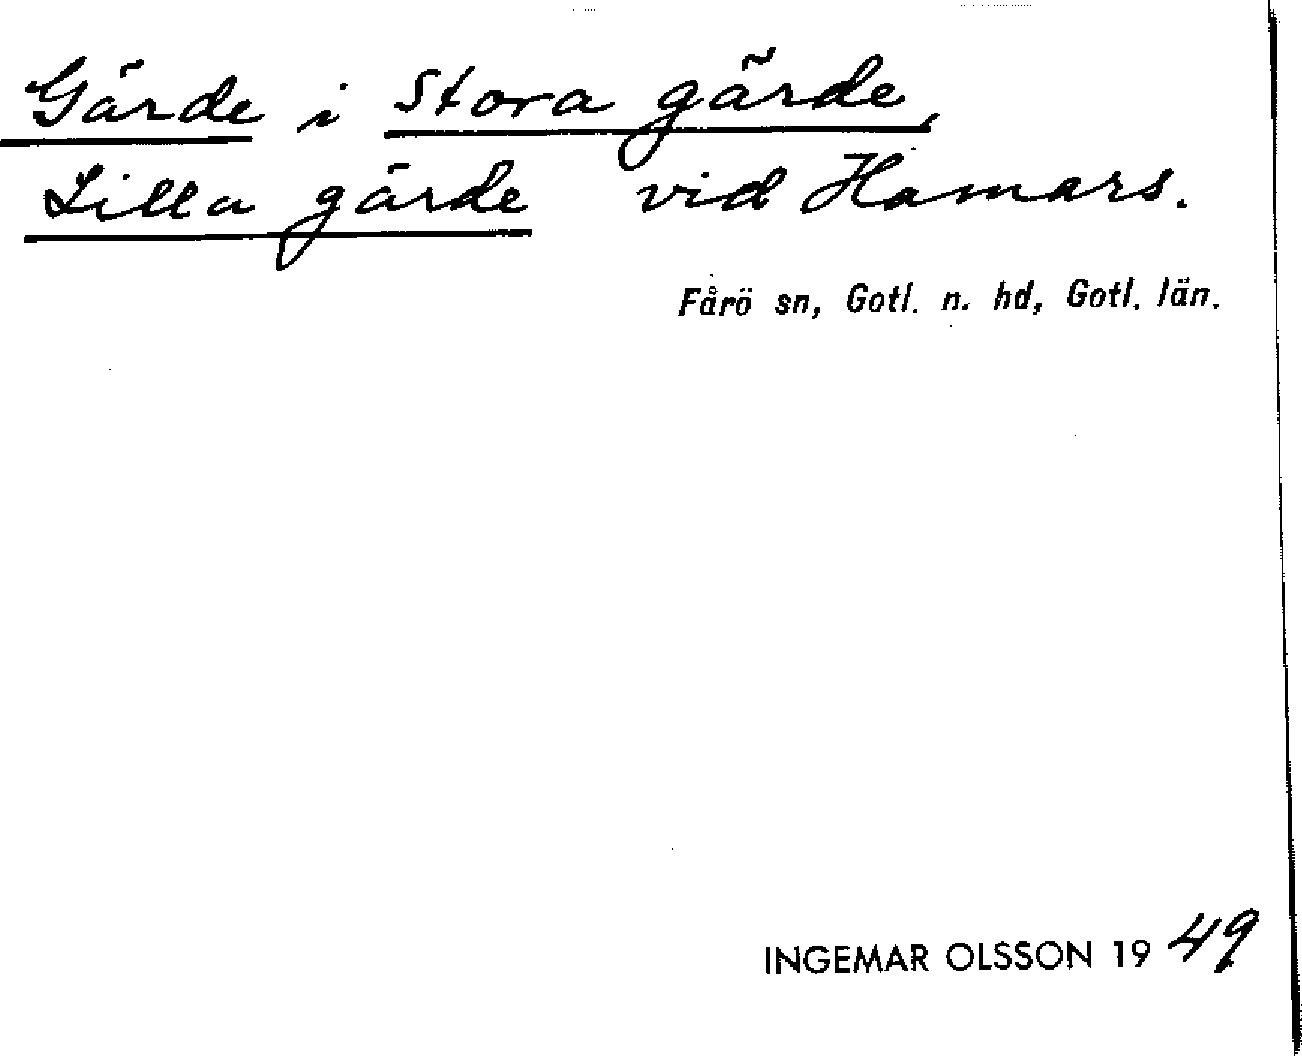 Gärde i Stora gärde,
Lilla gärde vid Hamars.
Fårö sn, Gotl. n. hd, Gotl. län.
INGEMAR OLSSON 1949